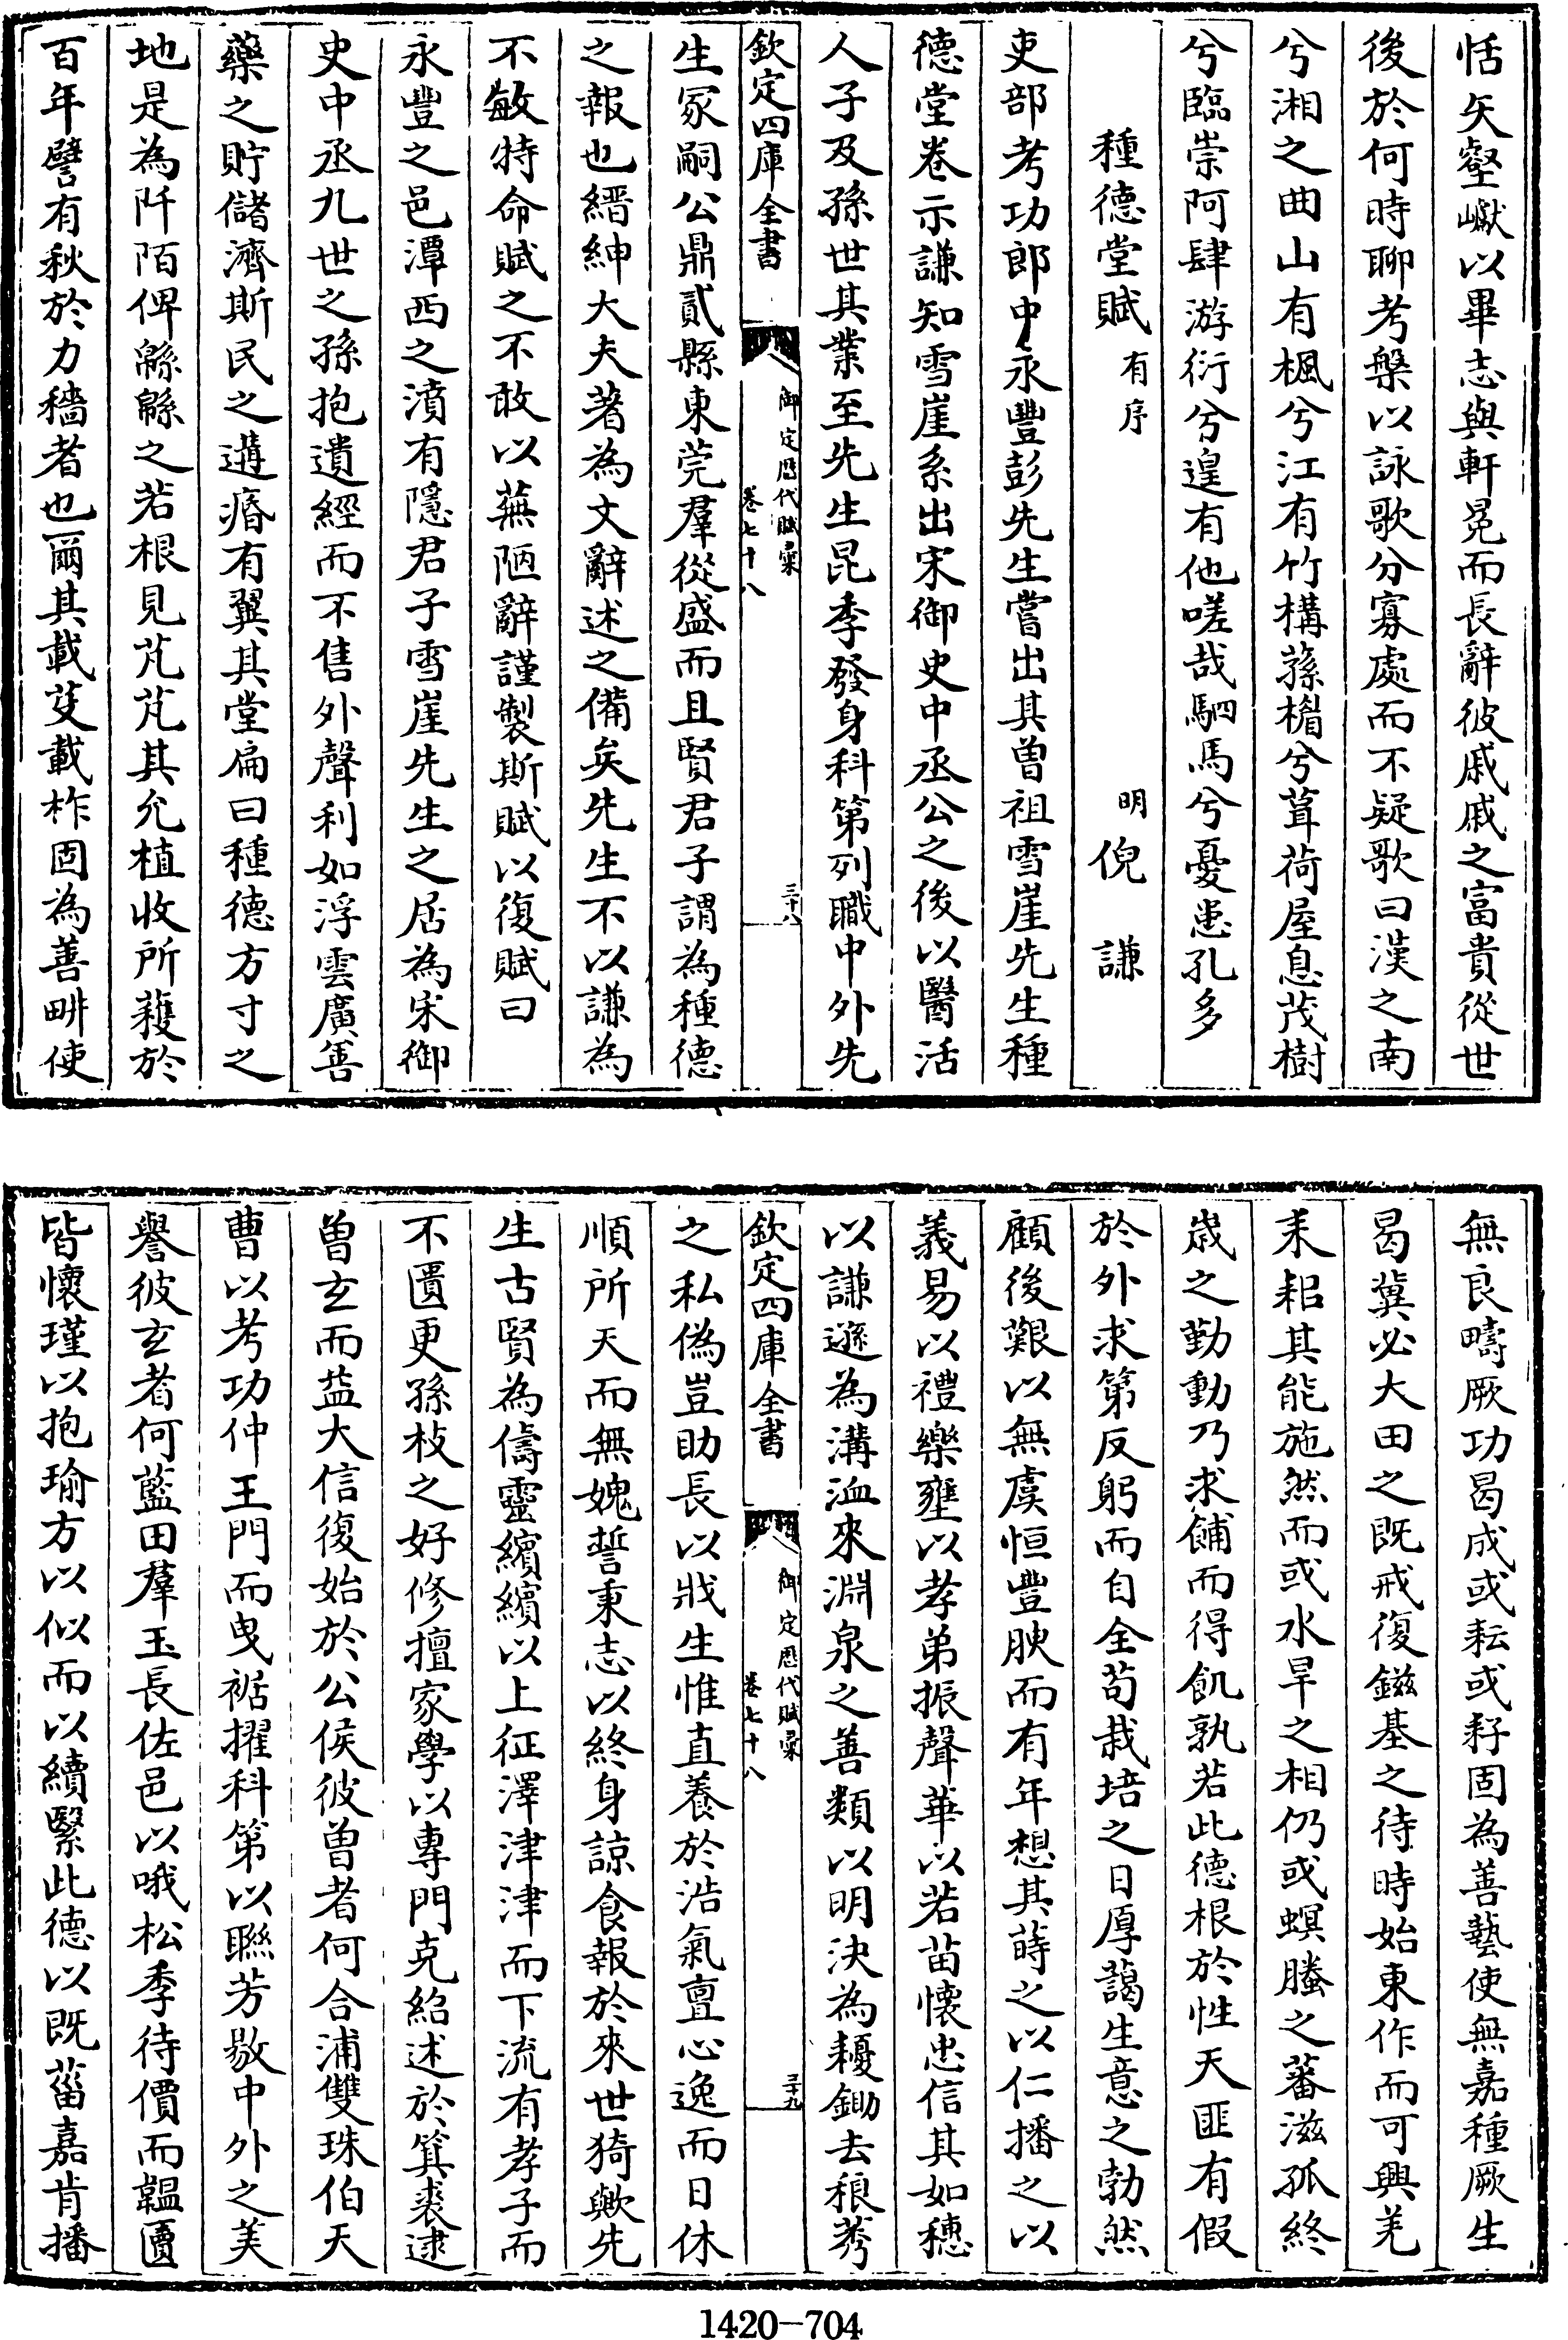 恬矢壑巘以畢志與軒冕而長辭彼戚戚之富貴從世
後於何時聊考槃以詠歌分寡處而不疑歌曰漢之南
兮湘之曲山有楓兮江有竹構蓀櫩兮葺荷屋息茂樹
兮臨崇阿肆游衍兮遑有他嗟哉駟馬兮憂患孔多
種德堂賦有序 明倪謙
吏部考功郎中永豐彭先生嘗出其曽祖雪崖先生種
德堂卷示謙知雪崖系出宋御史中丞公之後以醫活
人子及孫世其業至先生昆季發身科第列職中外先
欽定四庫全書 御定歴代賦彙 卷七十八 三十八
生冢嗣公鼎貳縣東莞羣從盛而且賢君子謂為種德
之報也縉紳大夫著為文辭述之備矣先生不以謙為
不敏特命賦之不敢以蕪陋辭謹製斯賦以復賦曰
永豐之邑潭西之濆有隱君子雪崖先生之居為宋御
史中丞九世之孫抱遺經而不售外聲利如浮雲廣善
藥之貯儲濟斯民之遘瘠有翼其堂扁曰種德方寸之
地是為阡陌俾緜緜之若根見芃芃其允植收所穫於
百年譬有秋於力穡者也爾其載芟載柞固為善畊使
無良疇厥功曷成或耘或耔固為善藝使無嘉種厥生
曷冀必大田之既戒復鎡基之待時始東作而可興羌
耒耜其能施然而或水旱之相仍或螟螣之蕃滋孤終
歳之勤動乃求餔而得飢孰若此德根於性天匪有假
於外求第反躬而自全苟栽培之日厚藹生意之勃然
顧後艱以無虞恒豐腴而有年想其蒔之以仁播之以
義易以禮樂壅以孝弟振聲華以若苗懷忠信其如穗
以謙遜為溝洫來淵泉之善類以明決為耰鋤去稂莠
欽定四庫全書 御定歴代賦彙 卷七十八 三十九
之私偽豈助長以戕生惟直養於浩氣亶心逸而日休
順所天而無媿誓秉志以終身諒食報於來世猗歟先
生古賢為儔靈繽繽以上征澤津津而下流有孝子而
不匱更孫枝之好修擅家學以專門克紹述於箕裘逮
曽玄而益大信復始於公侯彼曽者何合浦雙珠伯天
曹以考功仲王門而曳裾擢科第以聮芳敭中外之美
譽彼玄者何藍田羣玉長佐邑以哦松季待價而韞匵
皆懷瑾以抱瑜方以似而以續緊此德以既菑嘉肯播
1420-704